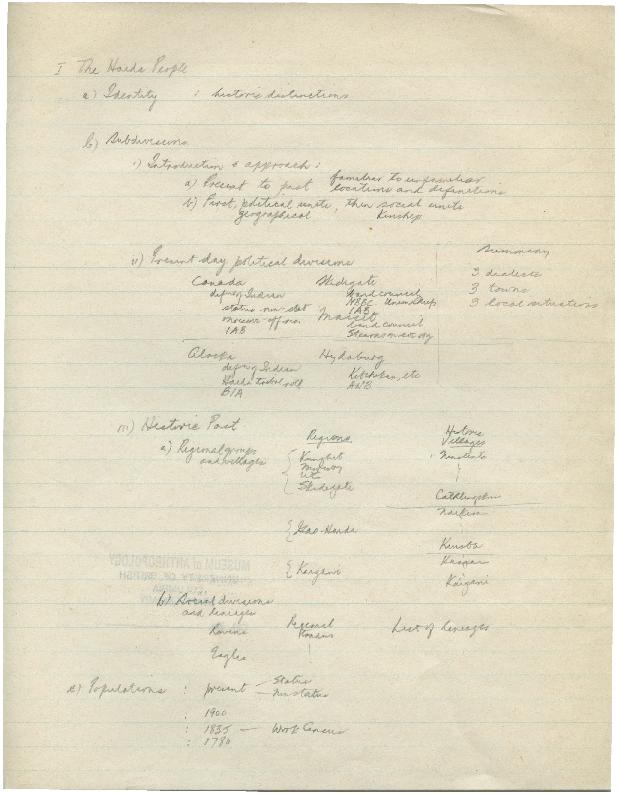 I The Haida People
a) Identity : historic distinctions
b) Subdivisions
i) Introduction & approach :
a) Present to past familiar to unfamiliar
locations and definitions
b) First, political units, then social units
geographical Kinship
ii) Present day political divisions
Summary
Canada Skidegate
3 dialects
def. of Indian band council
3 towns
status non-stat
3 local situations
IAB
Masset
band council
Alaska Hydaburg
def. of Indian Ketchikan, etc
Haida tribal roll ANB
BIA
iii) Historic Past
a) Regional groups Regions Historic
and villages Villages
Kunghit Ninstints
Skidegate
Naikun
Gao-Haida
Kiusta
Kaigani
Kaigani
MUSEUM of ANTHROPOLOGY
UNIVERSITY OF BRITISH
b) Social divisions
and lineages
Ravens Regional List of lineages
Eagles
c) Populations : present Status
Non status
: 1900
: 1835 — Work Census
: 1780